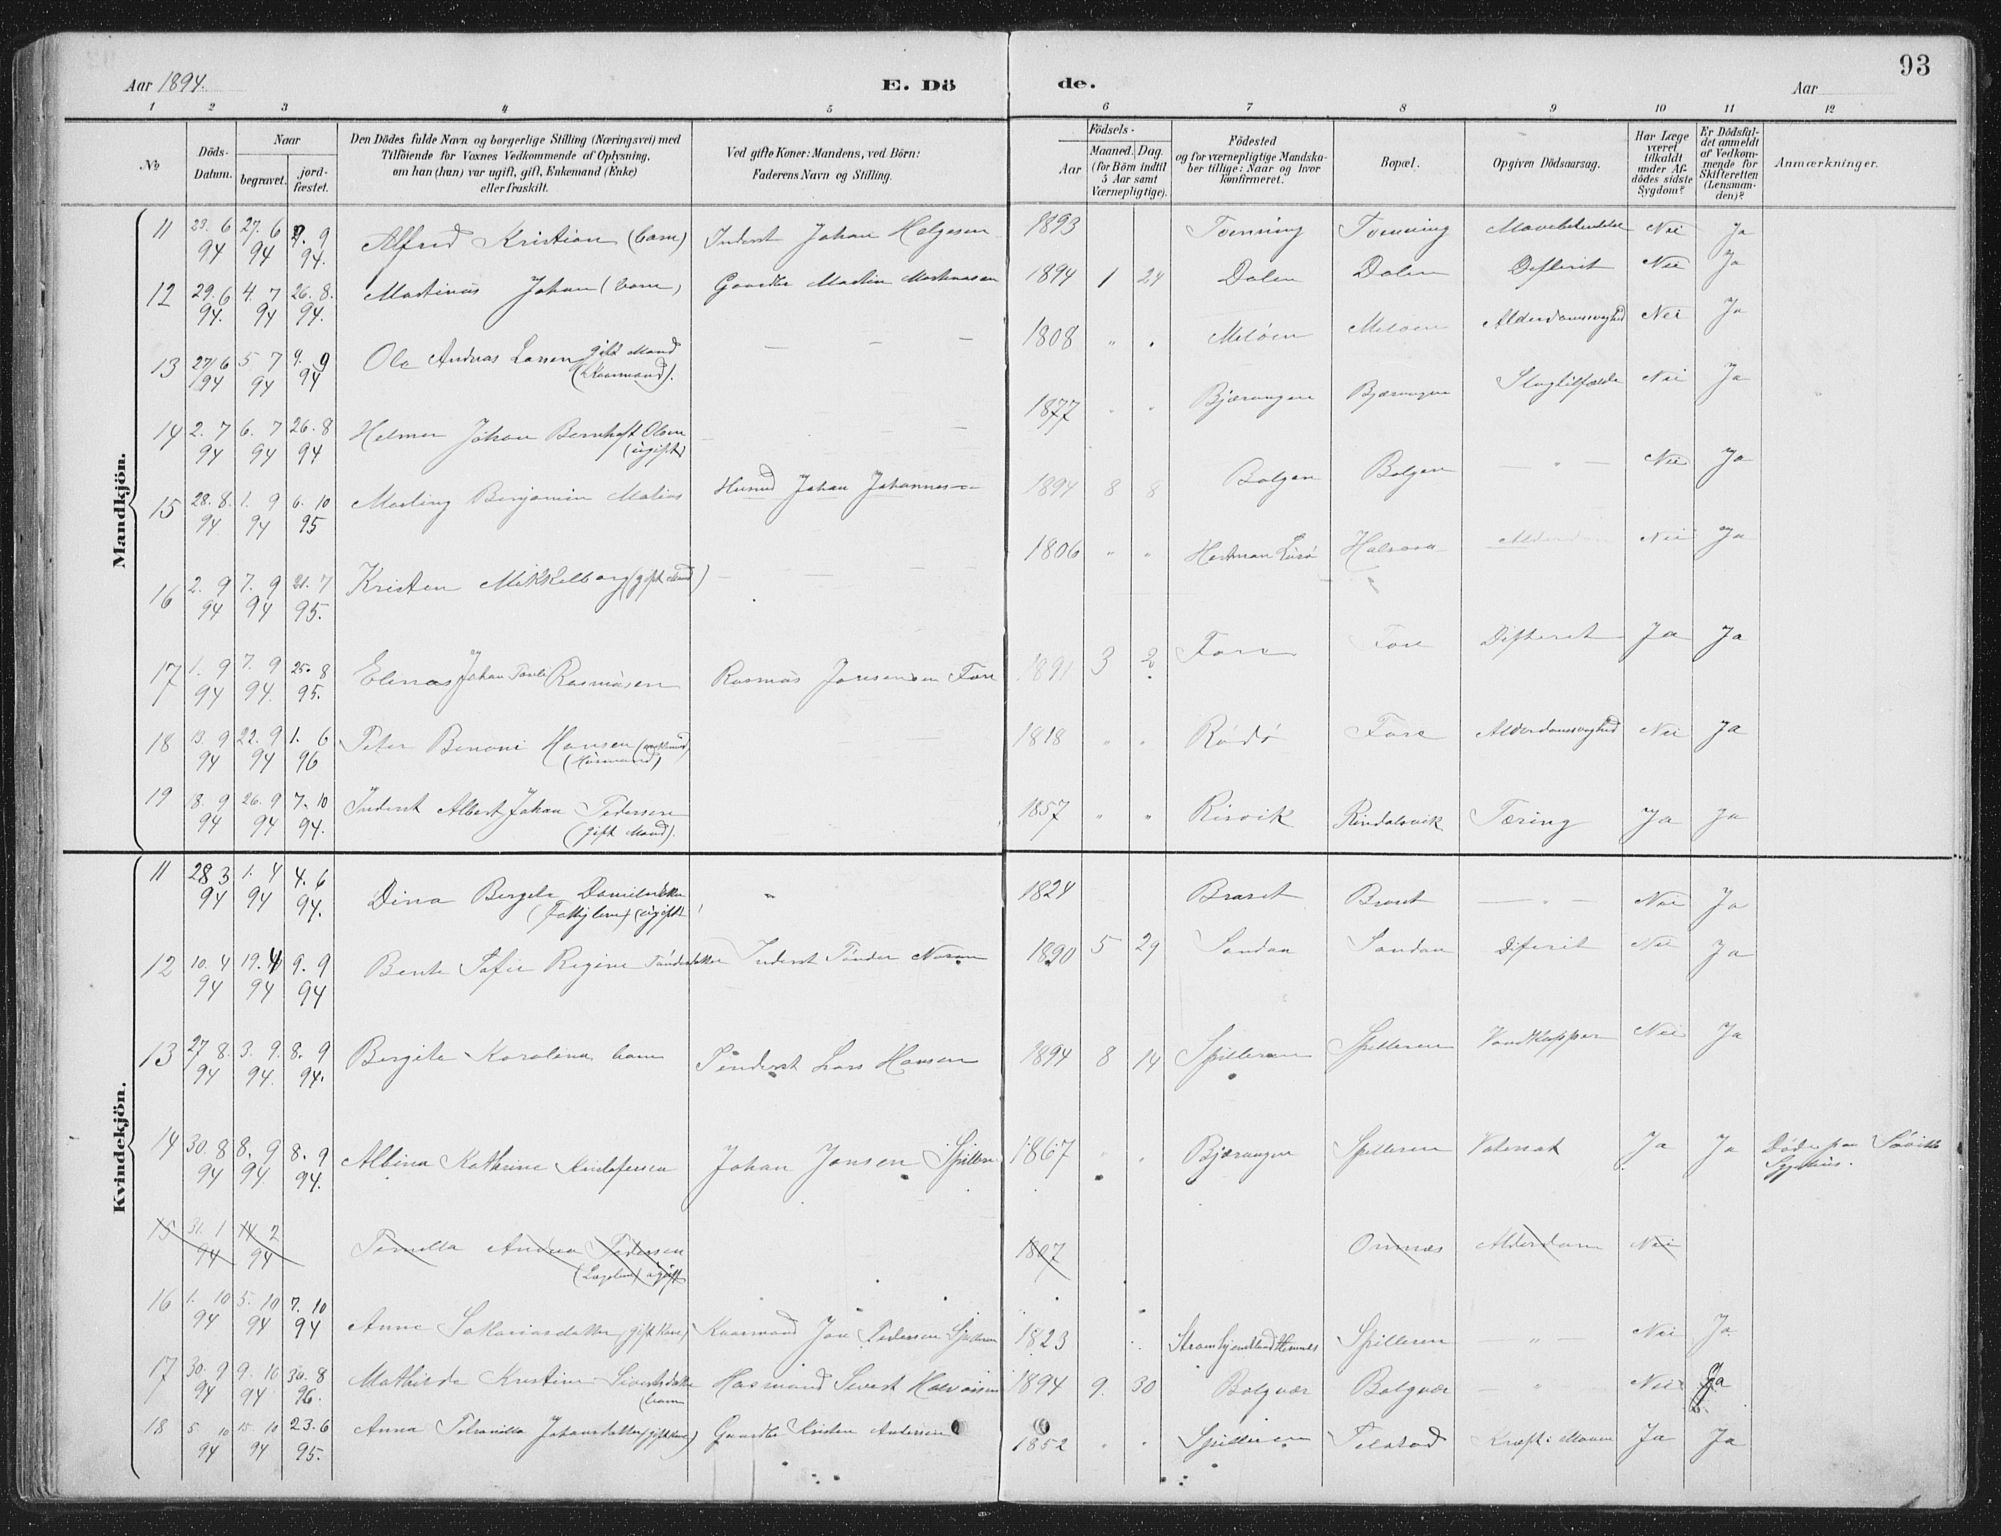 Aar 1894. E. Dö de. Aar 93
1 2 3 4 5 6 7 8 9 10 11 12
No Döds-Datum. Naar begravet. jord-fæstet. Den Dödes fulde Navn og borgerlige Stilling (Næringsvei) med Tilföiende for Voxnes Vedkommende af Oplysning, om han (hun) var ugift, gift, Enkemand (Enke) eller fraskilt. Ved gifte Koner: Mandens, ved Börn: Faderens Navn og Stilling. Födsels- Aar Maaned. Dag. (for Börn indtil 5 Aar samt Værnepligtige). Födested og for værnepligtige Mandskaber tillige: Naar og hvor konfirmeret. Bopæl. Opgiven Dödsaarsag. Har Læge været tilkaldt under Afdödes sidste Sygdom? Er Dödsfaldet anmeldt af Vedkommende for Skifteretten (Lensmanden)? Anmærkninger.
Mandkjön.
11 23. 6 94 27. 6 94 9. 9 94. Alfred Kristian (barn) Inderst Johan Helgesen 1893 Tvenning Tvenning Nei Ja
12 29. 6 94. 4. 7 94 26. 8. 94. Martinus Johan (barn) Gaardbr Martin Martinusen 1894 1 24 Dalen Dalen Difterit Nei Ja
13 27/6 94 5 7 94 9. 9 94 Ole Andreas Larsen gift Mand (Kaarmand). — — — 1808 " " Meløen Meløen Alderdomssvaghed Nei Ja
14 2. 7 94 6. 7 94 26. 8 94 Helmer Johan Bernhoft Olsen (ugift) 1877 " " Bjærangen Bjærangen Slagtilfælde Nei Ja
15 28. 8. 94 1. 9 94 6. 10 95 Marling Benjamin Matias Husmd Johan Johannes 1894 8 8 Bolgen Bolgen — " — Nei Ja
16 2. 9 94 7. 9 94 21. 7 95. Kristen Mikkelborg (gift Mand) 1806 " " Hestman Lurø Halsosa Alderdom Nei Ja
17 1. 9 94 7. 9 94. 25. 8 95. Elenas Johan Pauli Rasmusen Rasmus Jonsen Fore 1891 3 2 Fore Fore Difterit Ja Ja
18 13. 9 94 22. 9 94 1. 6 96 Peter Benoni Hansen (Husmand) 1818 " " Rødø Fore Alderdomssvaghed Nei Ja
19 18. 9 94 26. 9 94 7. 10 94. Inderst Albert Johan Pedersen (gift Mand). 1857 " " Risvik Rendalsvik Tæring Ja Ja
Kvindekjön.
11 28 3 94 1. 4 94 4. 6 94. Dina Bergete Danielsdatter (Fattiglem) (ugift) " 1824 Braset Braset — " — Nei Ja
12 10. 4 94 19. 4 94 9. 9 94 Bente Sofie Regine Tøndersdatter Inderst Tønder 1890 5 29 Sandaa Sandaa Difterit Nei Ja
13 27 8. 94 3. 9. 94. 8. 9 94. Bergite Karolina barn Inderst Lars Hansen 1894 8 14 Spilleren Spilleren Vandkopper Nei Ja
14 30. 8 94 8. 9 94 8. 9 94. Albina Kathrine Kristofersen Johan Jensen Spilleren 1867 " " Bjærangen Spilleren Ja Ja Død paa Sygehus.
15 31. 1 94 14 2 94 Pernella Andrea Pedersen (Lægdlem) ugift 1807 Ornnæs Alderdom Nei
16 1. 10 94 5. 10 94 7. 10 94 Anne Sakariasdatter (gift Kone) Kaarmand Jon Pedersen 1823 " Spilleren — " — Nei Ja
17 30. 9 94 9. 10 94 30. 8 96. Mathilde Kristine Sivertsdatter (barn) Husmand Sivert Halvorsen 1894 9. 30 Bolgvær Bolgvær — " — Nei Ja
18 5 10 94 15. 10 94 23. 6 95. Anna Petranilla Johansdatter (gift Kone) Gaardbr Kristen Andersen 1852 " " Spilleren Selstad Kræft i Maven Ja Ja